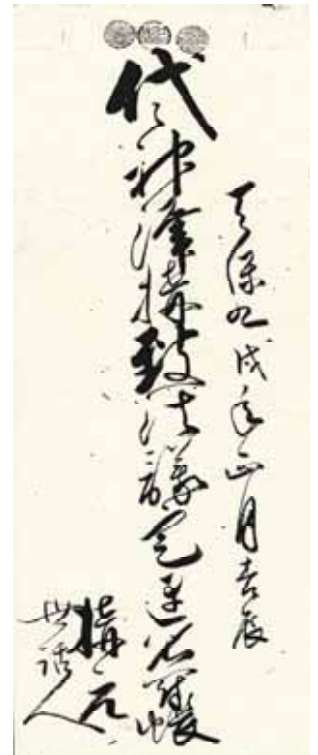 天保九戌年正月吉辰
代々神楽講議定連名帳
講元
世話人